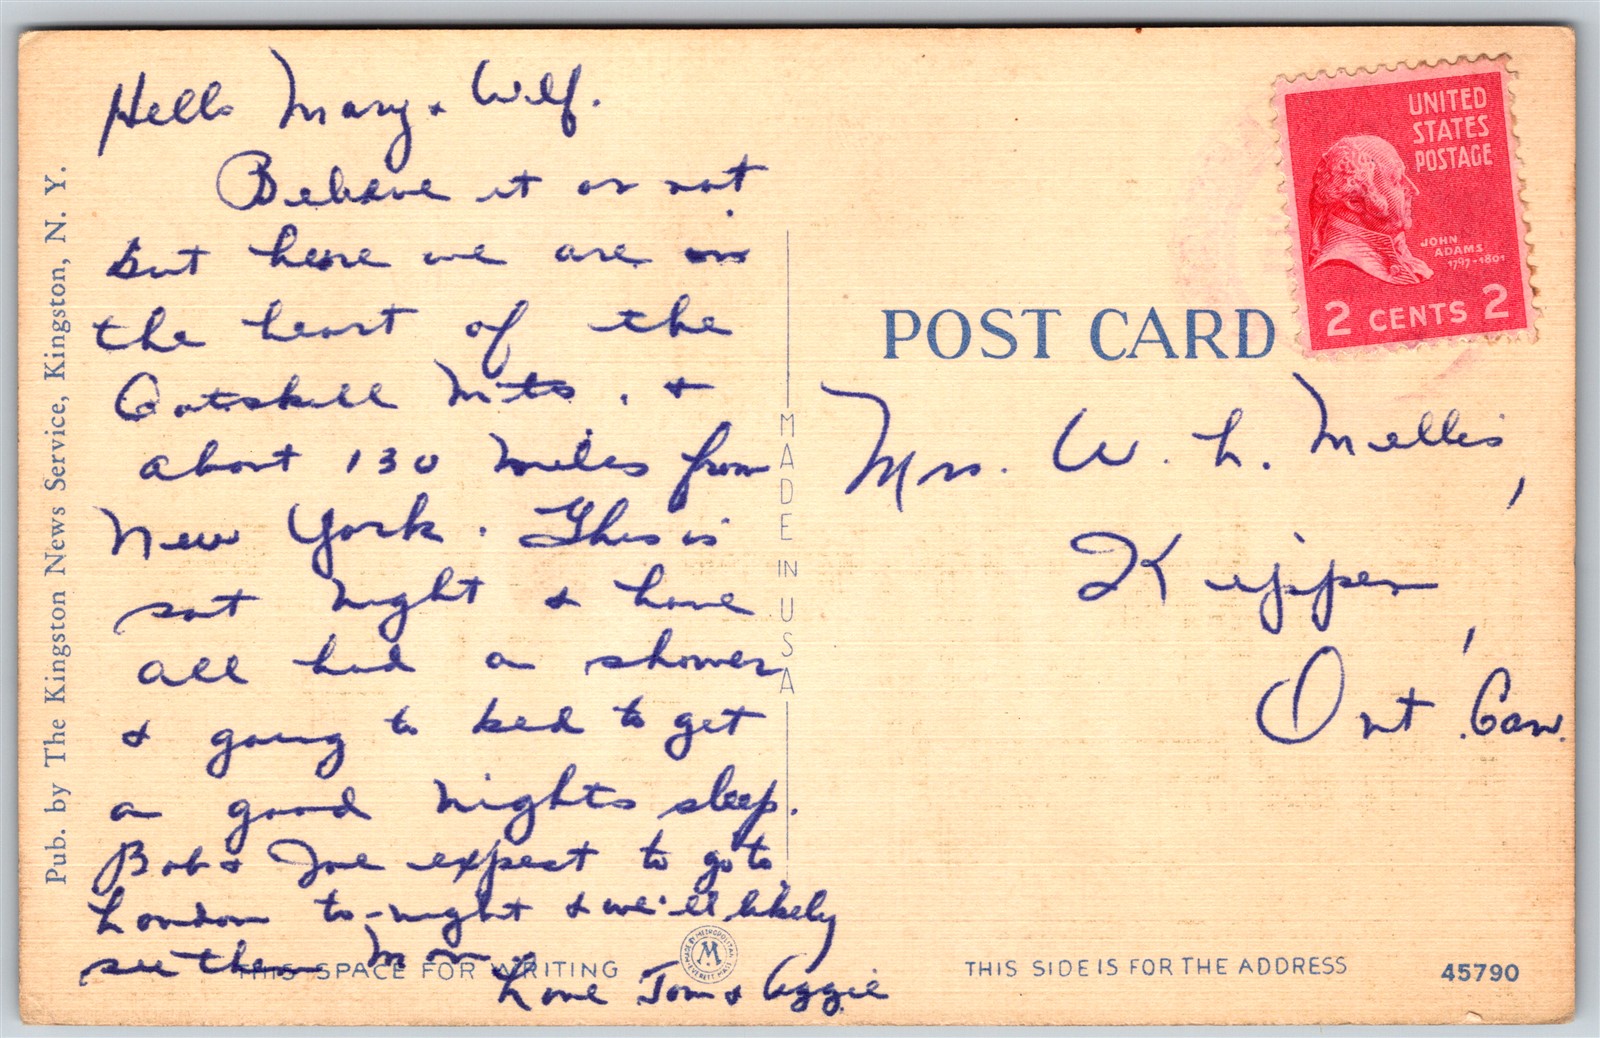 Hello Mary & Wilf.
Believe it or not
but here we are in
the heart of the
Catskill Mts. &
about 130 miles from
New York. This is
sat night & have
all had a shower
& going to bed to get
a good nights sleep.
Bob & Joe expect to go to
London to-night & we'll likely
see them Mon
Love Tom & Aggie
Pub. by The Kingston News Service, Kingston, N. Y.
MADE IN USA
THIS SPACE FOR WRITING
MADE BY METROPOLITAN
M
EVERETT, MASS.
UNITED
STATES
POSTAGE
JOHN
ADAMS
1797-1801
2 CENTS 2
POST CARD
Mrs. W. L. Mellis,
Kippen,
Ont. Can.
THIS SIDE IS FOR THE ADDRESS
45790